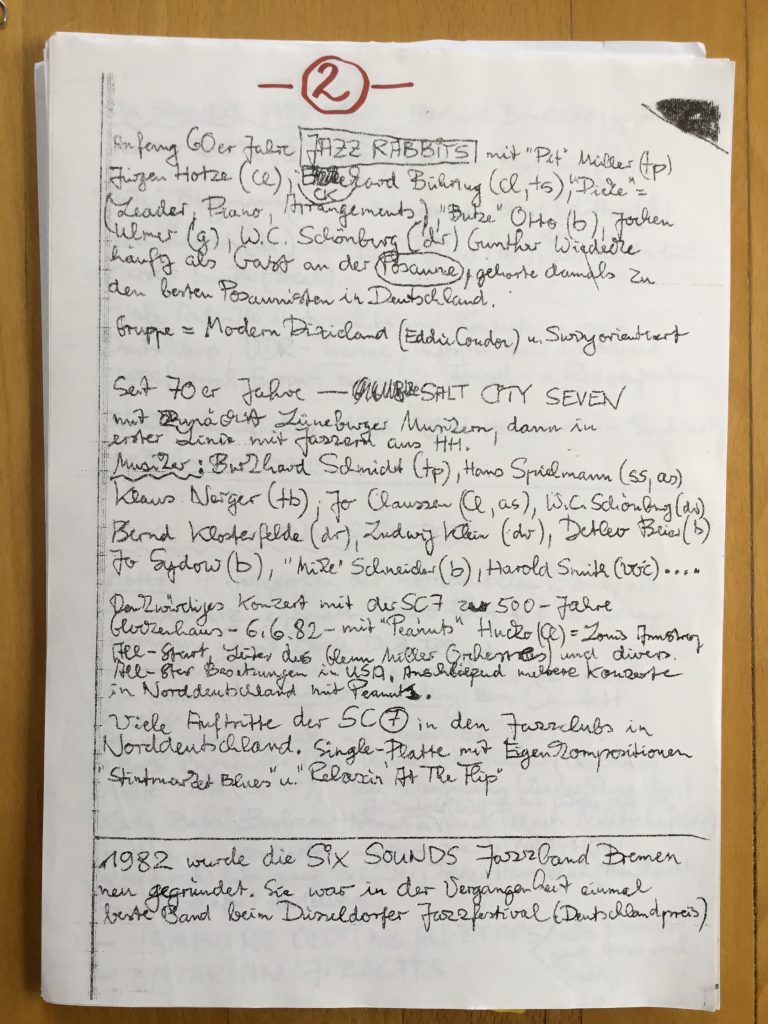 — 2 —
Anfang 60er Jahre JAZZ RABBITS mit "Pit" Müller (tp)
Jürgen Hotze (cl), Eckehard Bühring (cl, ts), =
(Leader, Piano, Arrangements), "Butze" Otto (b), Jochen
Ulmer (g), W.C. Schönberg (dr) Gunther Wiedecke
häufig als Gast an der Posaune, gehörte damals zu
den besten Posaunisten in Deutschland.
Gruppe = Modern Dixieland (Eddie Condon) u. Swingorientiert
Seit 70er Jahre — SALT CITY SEVEN
mit zunächst Lüneburger Musikern, dann in
erster Linie mit Jazzern aus HH.
Musiker: Burkhard Schmidt (tp), Hans Spielmann (ss, as)
Klaus Narger (tb), Jo Claussen (cl, as), W.C. Schönberg (dr)
Bernd Klosterfelde (dr), Ludwig Klein (dr), Detlev Beier (b)
Jo Sydow (b), "Mike" Schneider (b), Harold Smith (voc) ....
Denkwürdiges Konzert mit der SC7 500-Jahre
Glockenhaus - 6.6.82 - mit "Peanuts" Hucko (cl) = Louis Armstrong
All-Stars, Leiter des Glenn Miller Orchesters) und divers.
All-Star Besetzungen in USA. Anschließend mehrere Konzerte
in Norddeutschland mit Peanuts.
Viele Auftritte der SC7 in den Jazzclubs in
Norddeutschland. Single-Platte mit Eigenkompositionen
"Stintmarket Blues" u. "Relaxin' At The Flip"
1982 wurde die SIX SOUNDS Jazzband Bremen
neu gegründet. Sie war in der Vergangenheit einmal
beste Band beim Düsseldorfer Jazzfestival (Deutschlandpreis)